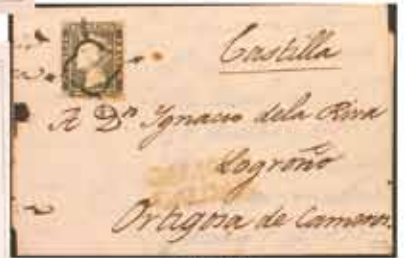 Castilla
A Dn Ygnacio dela Riva
Logroño
Ortigosa de Cameros.